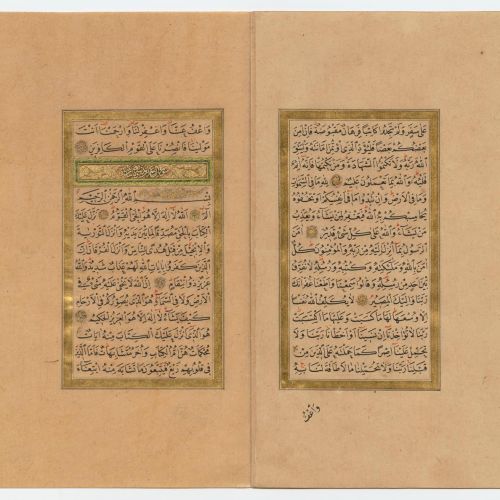 على سفر ولم تجدوا كاتبا فرهان مقبوضة فان امن
بعضكم بعضا فليؤد الذي اؤتمن امانته وليتق
الله ربه ولا تكتموا الشهادة ومن يكتمها فانه اثم
قلبه والله بما تعملون عليم لله ما في السموات
وما في الارض وان تبدوا ما في انفسكم او تخفوه
يحاسبكم به الله فيغفر لمن يشاء ويعذب
من يشاء والله على كل شيء قدير امن
الرسول بما انزل اليه من ربه والمؤمنون كل
امن بالله وملئكته وكتبه ورسله لا نفرق
بين احد من رسله وقالوا سمعنا واطعنا غفرانك
ربنا واليك المصير لا يكلف الله نفسا
الا وسعها لها ما كسبت وعليها ما اكتسبت
ربنا لا تؤاخذنا ان نسينا او اخطأنا ربنا ولا
تحمل علينا اصرا كما حملته على الذين من
قبلنا ربنا ولا تحملنا ما لا طاقة لنا به
واعف
واعف عنا واغفر لنا وارحمنا انت
مولينا فانصرنا على القوم الكافرين
بسم الله الرحمن الرحيم
الم الله لا اله الا هو الحي القيوم نزل عليك
الكتاب بالحق مصدقا لما بين يديه وانزل التورية
والانجيل من قبل هدى للناس وانزل الفرقان ان
الذين كفروا بايات الله لهم عذاب شديد والله
عزيز ذو انتقام ان الله لا يخفى عليه شيء في
الارض ولا في السماء هو الذي يصوركم في الارحام
كيف يشاء لا اله الا هو العزيز الحكيم
هو الذي انزل عليك الكتاب منه ايات
محكمات هن ام الكتاب واخر متشابهات فاما الذين
في قلوبهم زيغ فيتبعون ما تشابه منه ابتغاء